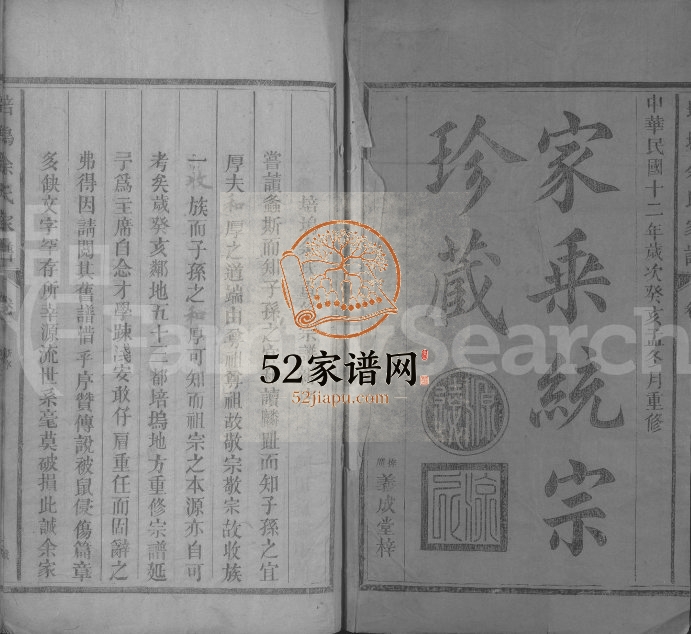 中華民國十二年歲次癸亥孟冬月重修
家乘統宗
珍藏
義成堂梓
嘗讀螽斯而知子孫之讀麟趾而知子孫之宜
厚夫和厚之道端由尊祖尊祖故敬宗敬宗故收族
收族而子孫之和厚可知而祖宗之本源亦自可
考矣歲癸亥鄰地五十二都培塢地方重修宗譜延
予爲主席自念才學踈淺安敢仔肩重任而固辭之
弗得因請閱其舊譜惜乎序贊傳說被鼠侵傷篇章
多缺文字罕有所幸源流世系毫莫破損此誠余家
培塢余氏家譜
52家谱网
52jiapu.com
FamilySearch